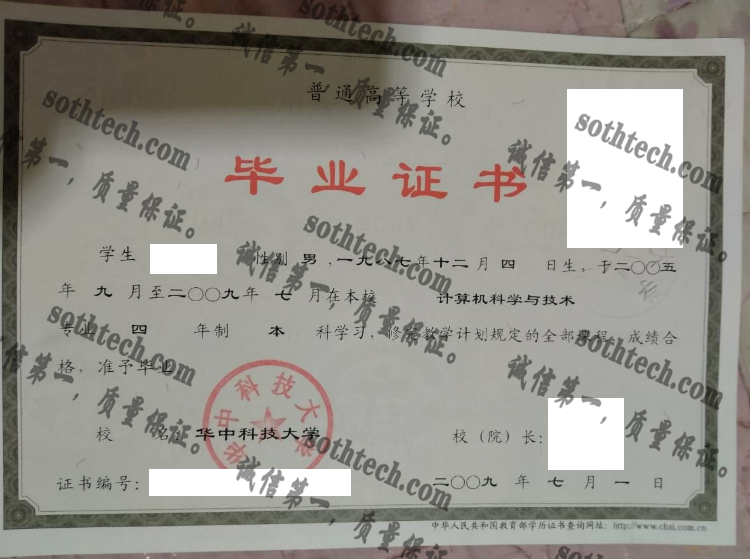 普通高等学校
毕业证书
学生 性别 男 ,一九八七年 十二 月 四 日生, 于二〇〇五
年 九 月至二〇〇九年 七 月在本校 计算机科学与技术
专业 四 年制 本 科学习, 修完教学计划规定的全部课程, 成绩合
格, 准予毕业
华中科技大学
校 名: 华中科技大学 校(院)长:
证书编号: 二〇〇九 年 七 月 一 日
中华人民共和国教育部学历证书查询网址: http://www.chsi.com.cn
sothtech.com
诚信第一,质量保证。
sothtech.com
诚信第一,质量保证。
sothtech.com
诚信第一,质量保证。
sothtech.com
诚信第一,质量保证。
sothtech.com
诚信第一,质量保证。
sothtech.com
诚信第一,质量保证。
sothtech.com
诚信第一,质量保证。